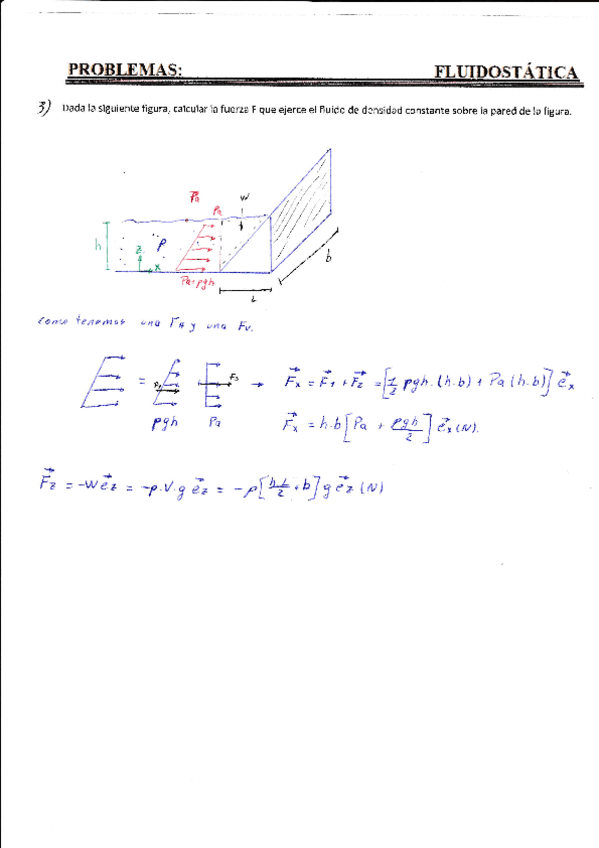 PROBLEMAS: FLUIDOSTÁTICA
3) Dada la siguiente figura, calcular la fuerza F que ejerce el fluido de densidad constante sobre la pared de la figura.
Pa
Pa
W
h
ρ
z
x
Pa+ρgh
L
b
Como tenemos una FH y una FV.
= F1 F2 → F⃗x = F⃗1 + F⃗2 = [1/2 ρgh·(h·b) + Pa (h·b)] e⃗x
ρgh Pa F⃗x = h·b [Pa + ρgh/2] e⃗x (N).
F⃗z = -W e⃗z = -ρ·V·g e⃗z = -ρ [h·L/2 · b] g e⃗z (N)